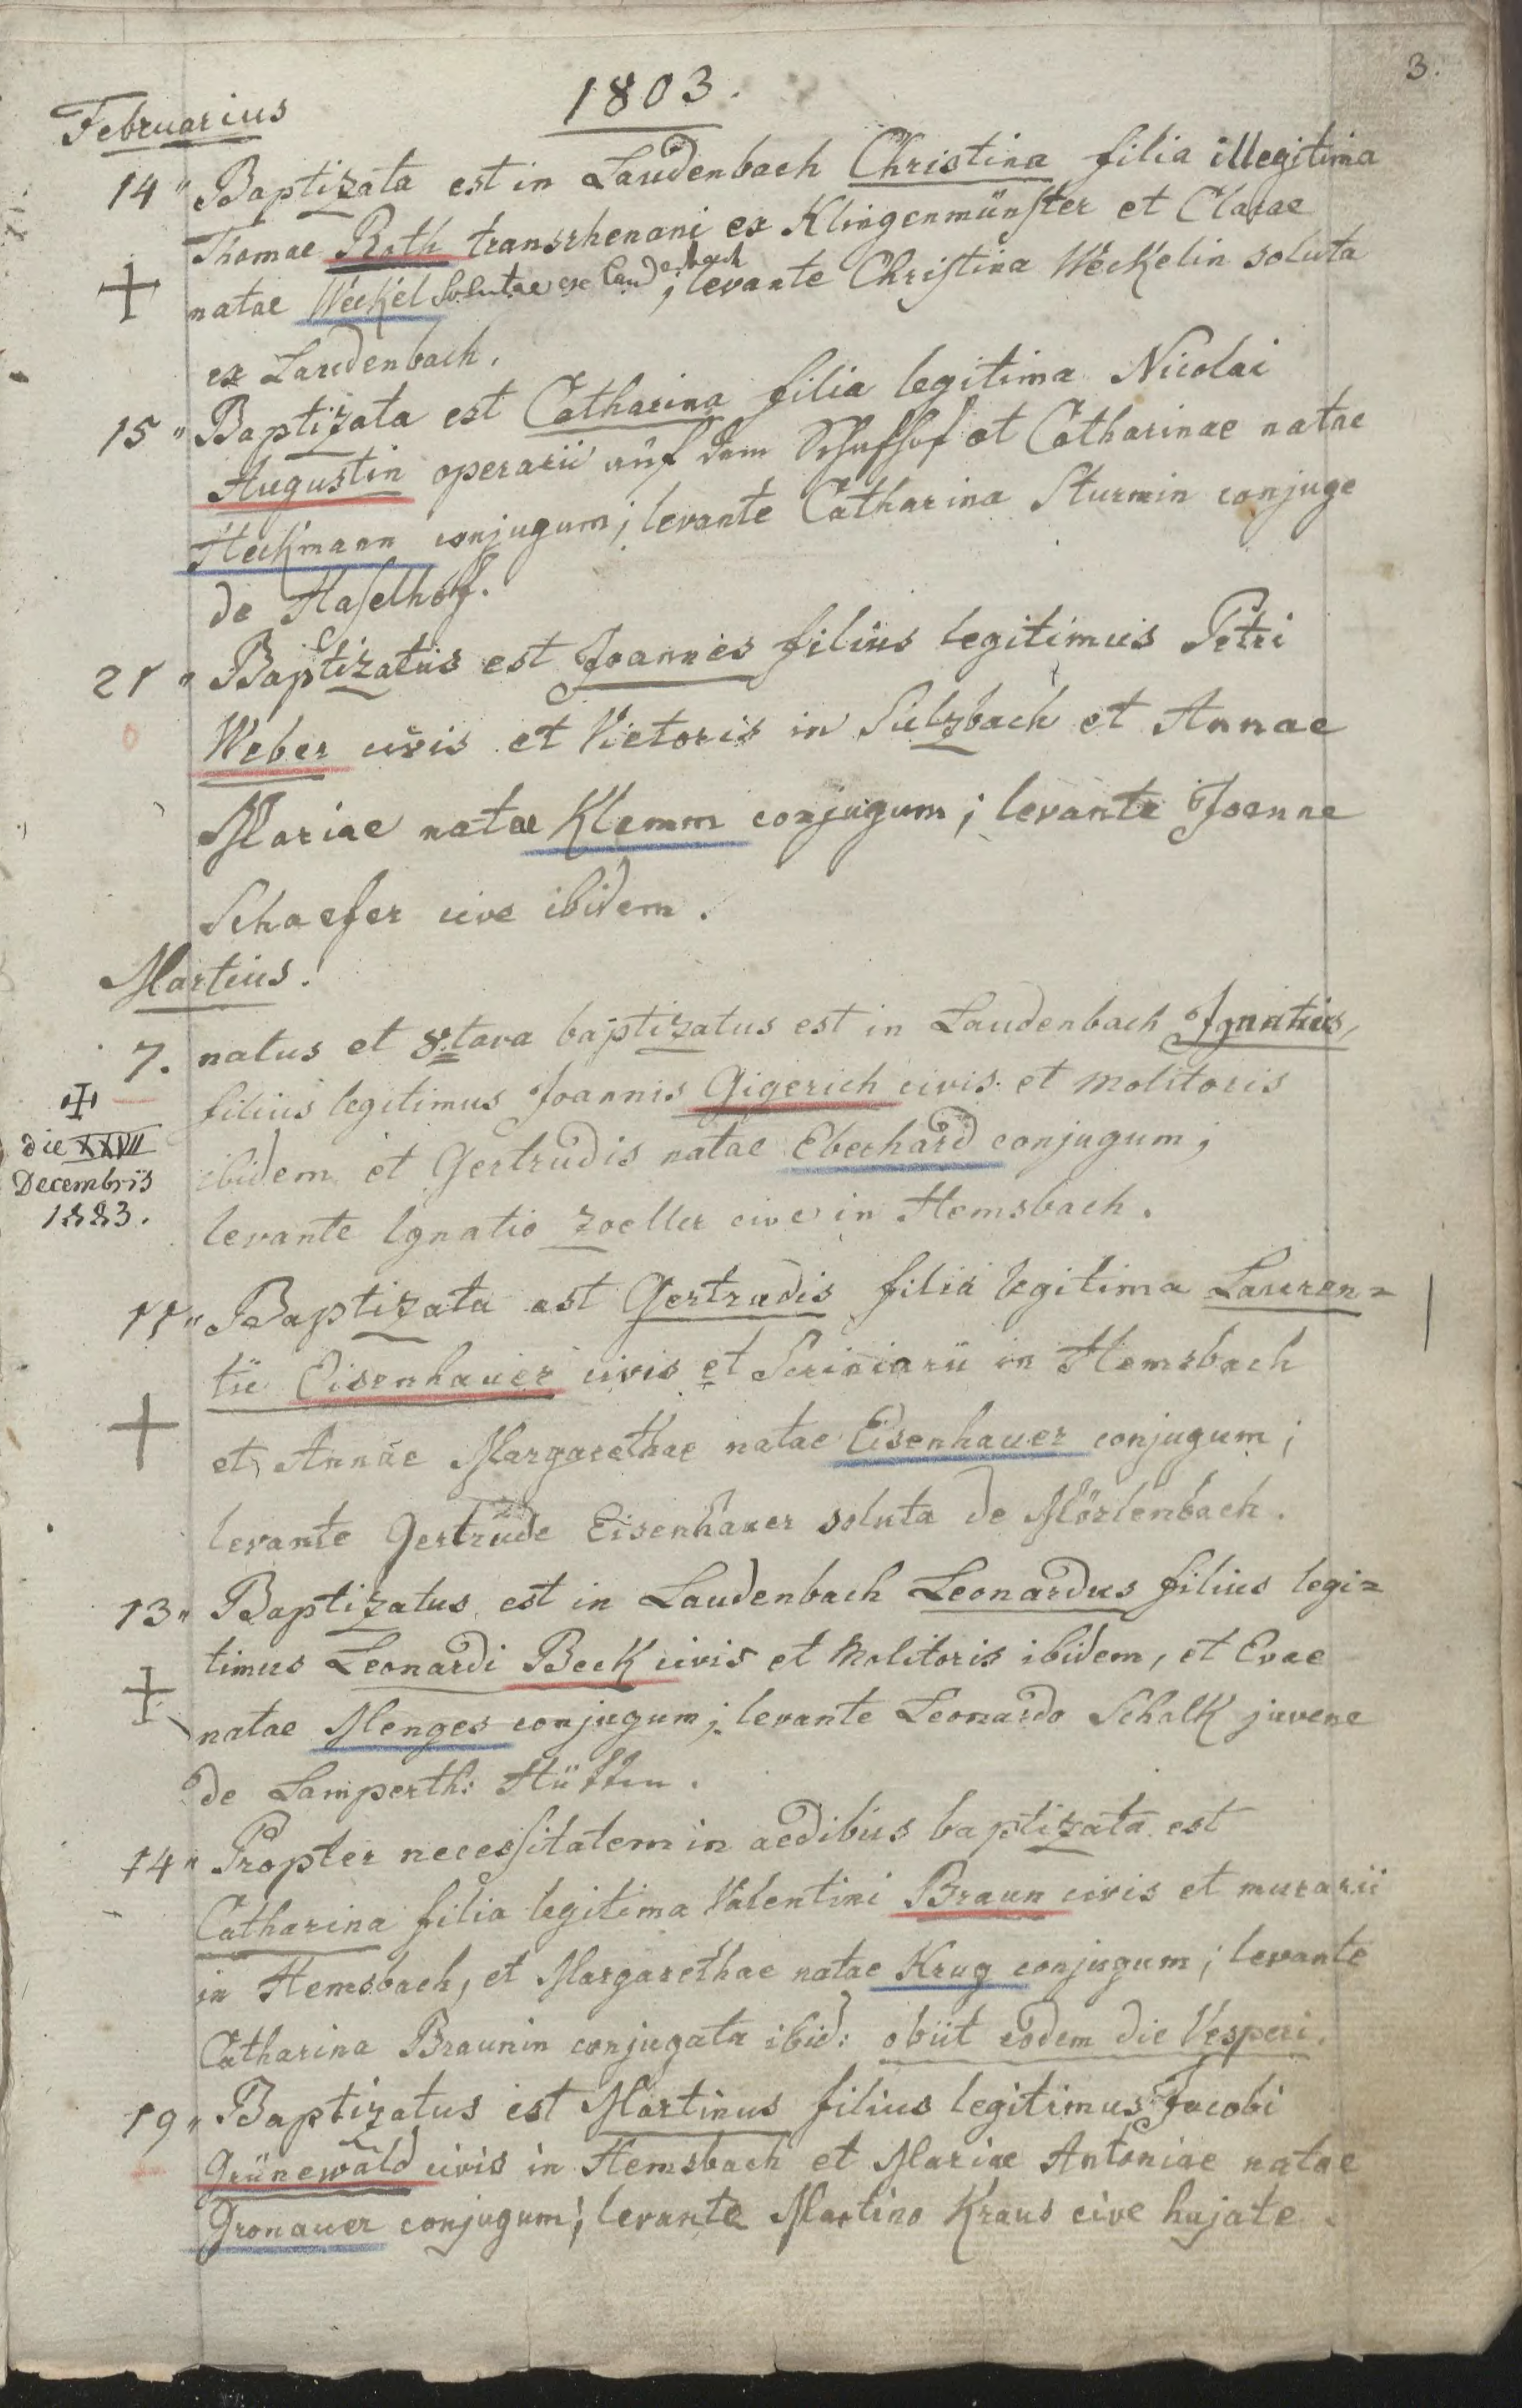 3.
1803.
Februarius
14" Baptizata est in Laudenbach Christina filia illegitima
Thomae Roth transrhenani ex Klingenmünster et Clarae
natae Weckel Solutae ex Laudenbach; levante Christina Weckelin soluta
ex Laudenbach.
15" Baptizata est Catharina filia legitima Nicolai
Augustin operarii auf dem et Catharinae natae
Heckmann conjugum; levante Catharina Sturmin conjuge
de Haselhof.
21" Baptizatus est Joannes filius legitimus Petri
Weber civis et Vietoris in Sulzbach et Annae
Mariae natae Klemm conjugum; levante Joanne
Schaefer cive ibidem.
Martius.
7. natus et 8tava baptizatus est in Laudenbach Ignatius,
filius legitimus Joannis Gigerich civis et Molitoris
ibidem et Gertrudis natae Eberhard conjugum;
levante Ignatio Zoeller cive in Hemsbach.
die XXVII
Decembris
1883.
11" Baptizata est Gertrudis filia legitima Lauren=
tii Eisenhauer civis et Scriniarii in Hemsbach
et Annae Margarethae natae Eisenhauer conjugum;
levante Gertrude Eisenhauer soluta de Mörlenbach.
13" Baptizatus est in Laudenbach Leonardus filius legi=
timus Leonardi Beck civis et Molitoris ibidem, et Evae
natae Menges conjugum; levante Leonardo Schalk juvene
de Lamperth: Hütten.
14" Propter necessitatem in aedibus baptizata est
Catharina filia legitima Valentini Braun civis et murarii
in Hemsbach, et Margarethae natae Krug conjugum; levante
Catharina Braunin conjugata ibid: obiit eodem die Vesperi.
19" Baptizatus est Martinus filius legitimus Jacobi
Grünewald civis in Hemsbach et Mariae Antoniae natae
Gronauer conjugum; levante Martino Kraus cive hujate.